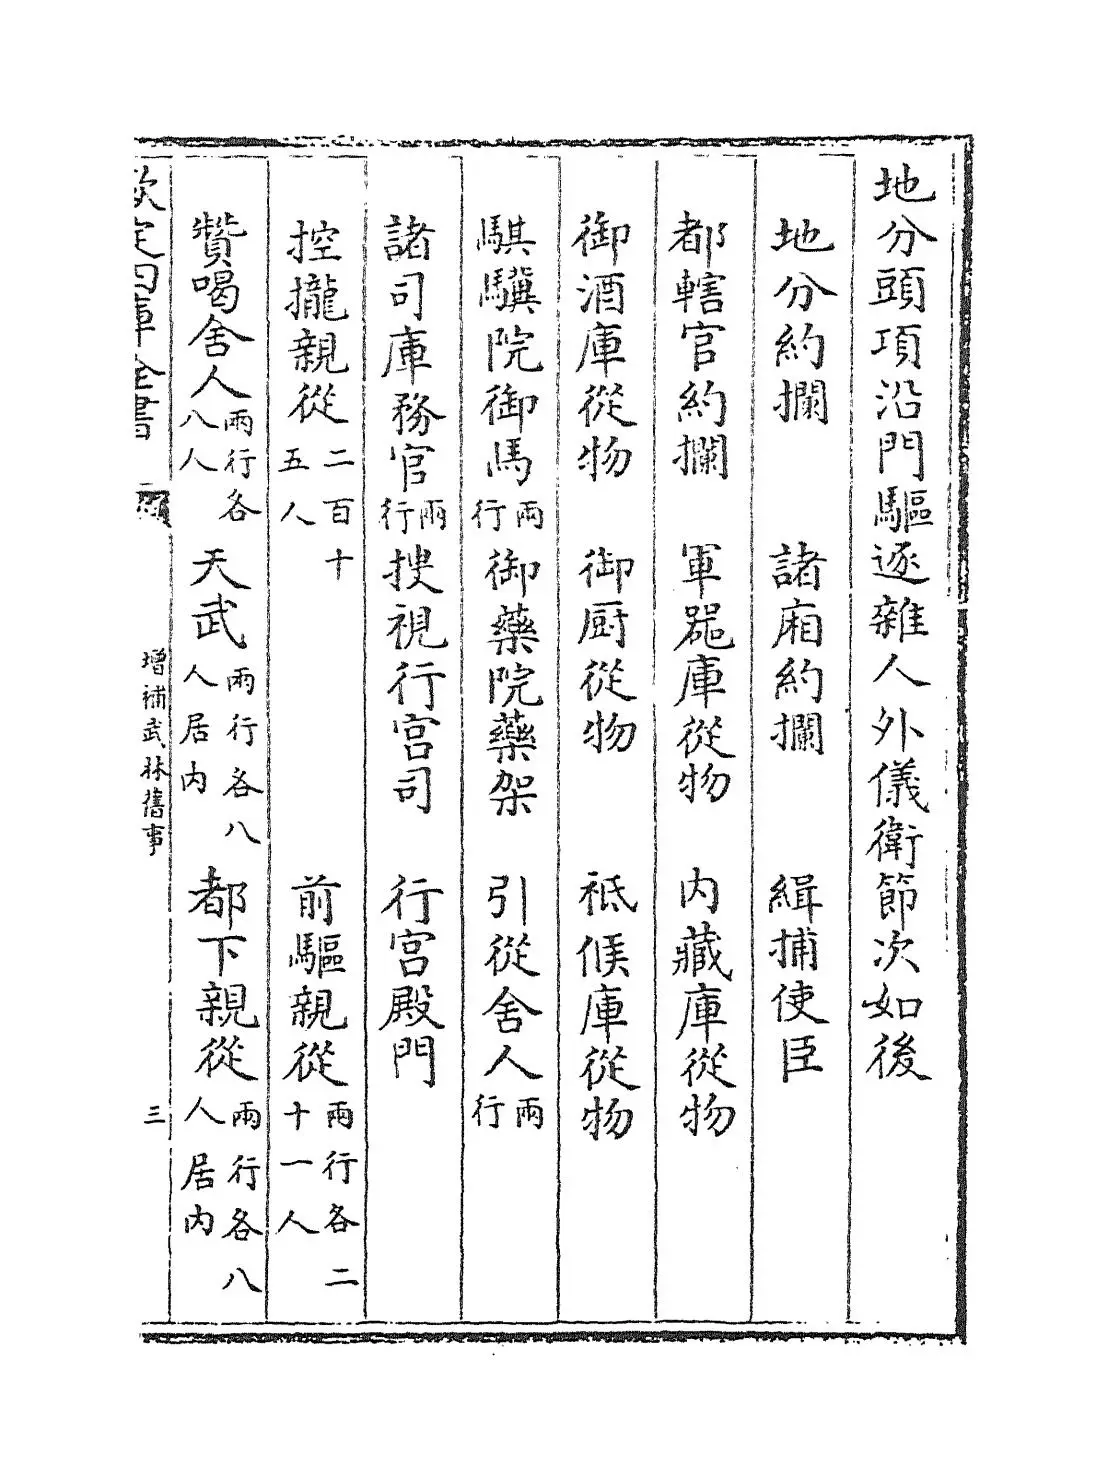 地分頭項沿門驅逐雜人外儀衛節次如後
地分約攔　諸廂約攔　緝捕使臣
都轄官約攔　軍器庫從物　内藏庫從物
御酒庫從物　御厨從物　祗候庫從物
騏驥院御馬兩行　御藥院藥架　引從舍人兩行
諸司庫務官兩行　搜視行宫司　行宫殿門
控攏親從二百十五人　前驅親從兩行各二十一人
贊喝舍人兩行各八人　天武兩行各八人居内　都下親從兩行各八人居内
欽定四庫全書　增補武林舊事　三